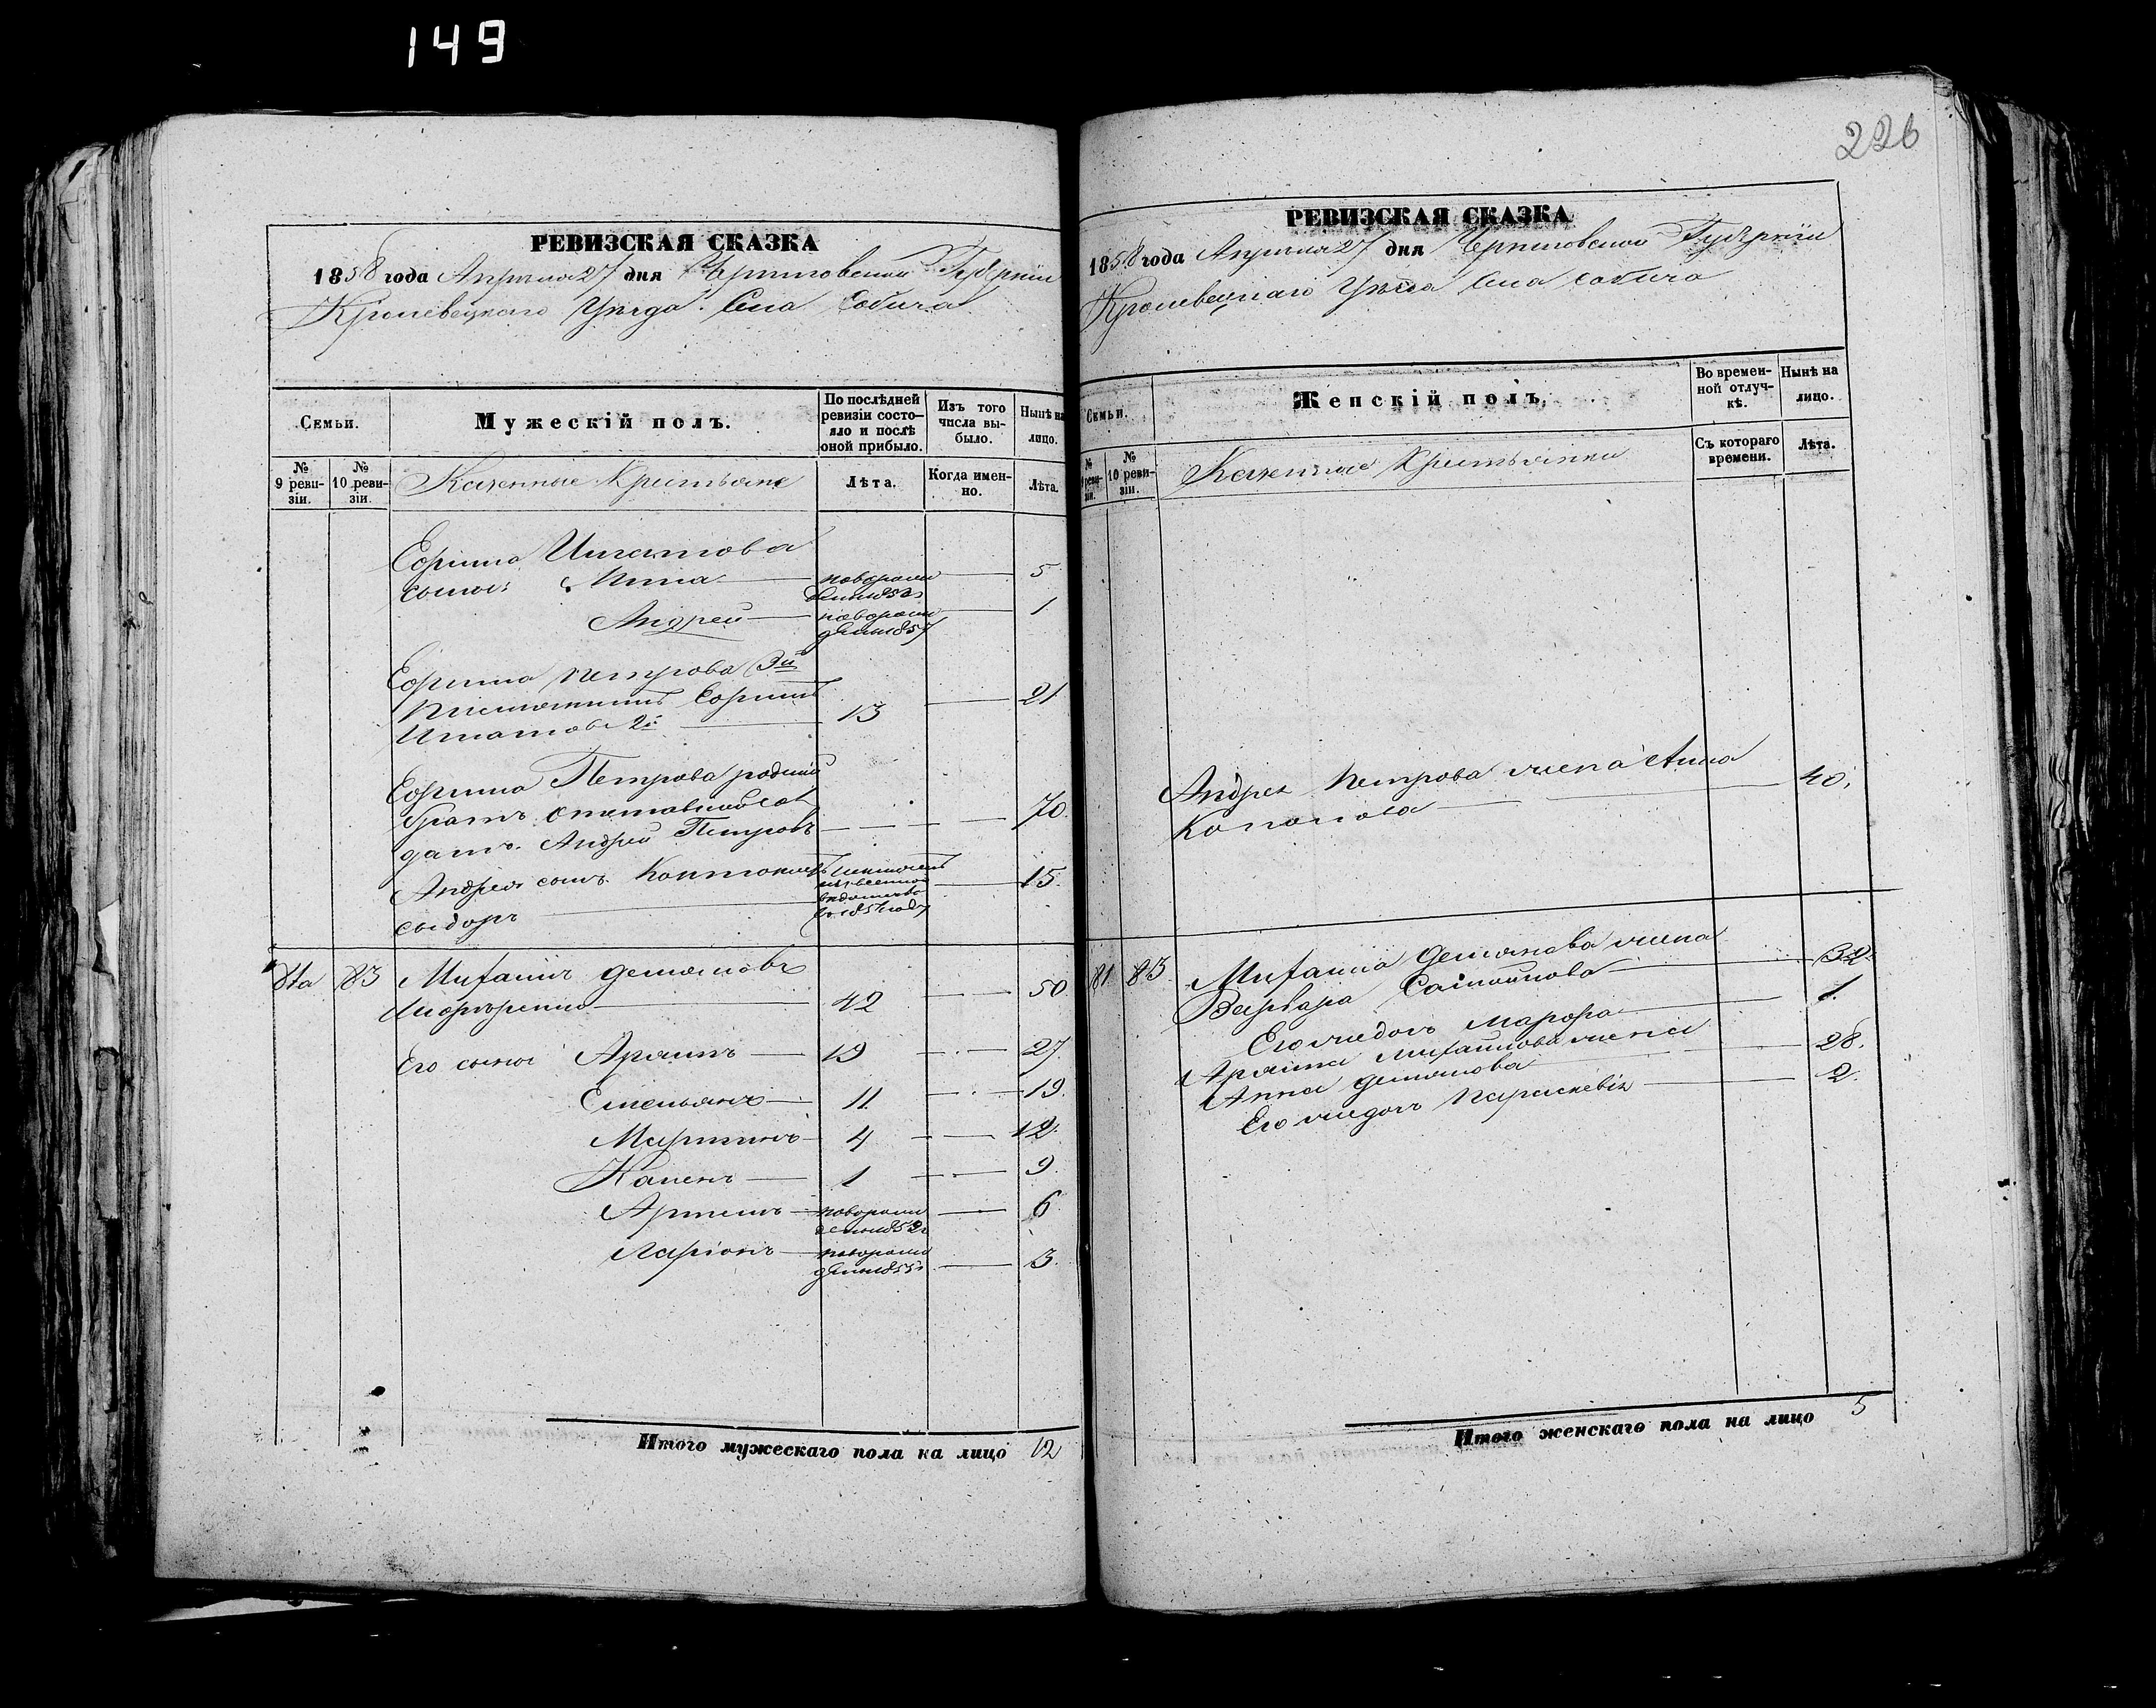 149
226
РЕВИЗСКАЯ СКАЗКА
1858 года Апреля 27 дня Черниговской Губернии
Кролевецкаго Уезда Села Собича
Семьи.
Мужескій полъ.
По послѣдней ревизіи состояло и послѣ оной прибыло.
Изъ того числа выбыло.
Нынѣ на лицо.
№ 9 ревизіи.
№ 10 ревизіи.
Казенные Крестьяне
Лѣта.
Когда именно.
Лѣта.
Ефима Игнатова
сыны
новорожденный 1853
5
Андрей
новорожденный 1857
1
Ефима Петрова 3й
Ефимъ
Игнатовъ 2й
13
21
Ефима Петрова родный
братъ отставной солдатъ Андрей Петровъ
70.
Андрея сынъ Кантонистъ
сыдоръ
15.
81а 83 Михаилъ Демяновъ
42 50
Его сыны
19 27
Емельянъ 11 19.
Мартинъ 4 12.
1 9.
Артемъ новорожденный 1852 6
Ларіонъ новорожденный 1855 3.
Итого мужескаго пола на лицо 12
РЕВИЗСКАЯ СКАЗКА
1858 года Апреля 27 дня Черниговской Губерніи
Кролевецкаго Уезда Села Собича
Семьи.
Женскій полъ.
Во временной отлучкѣ.
Нынѣ на лицо.
№ 9 ревизіи.
№ 10 ревизіи.
Казенные Крестьянки
Съ котораго времени.
Лѣта.
Андрея Петрова жена Анна
40.
81 83 Михаила Демянова жена
Варвара
32.
Его жедочь
1.
Михайлова жена
Анна Демянова 28.
Его жедочь Параскевія 2.
Итого женскаго пола на лицо 5